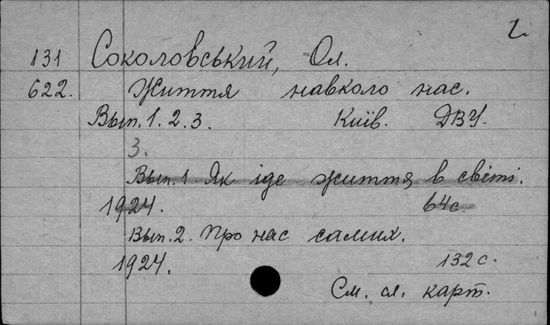 2
131 Соколовський, Ол.
622. Життя навколо нас.
Вып. 1. 2. 3. Київ. ДВУ.
3.
Вып. 1. Як іде життя в світі.
1924. 64 с.
Вып. 2. Про нас самих.
1924. 132 с.
См. сл. карт.